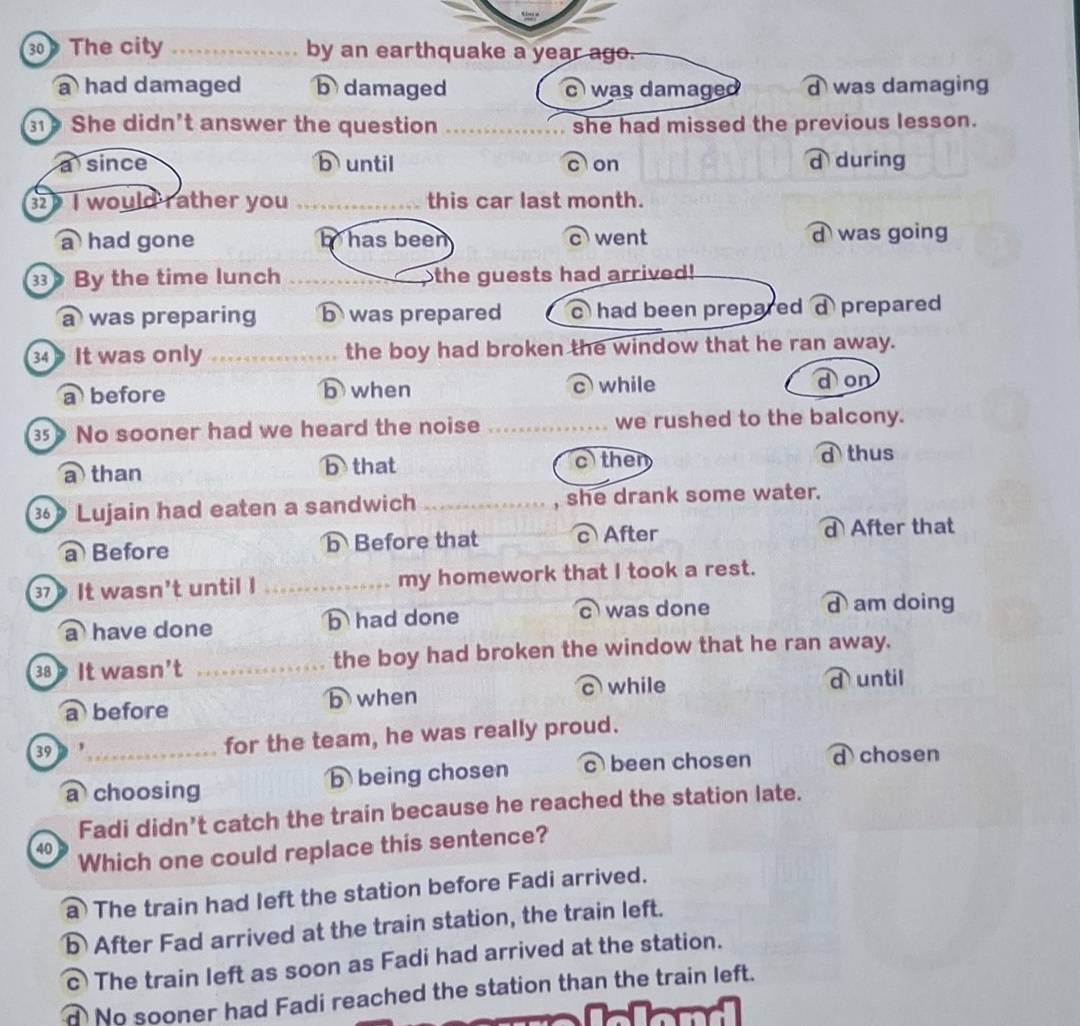 30 The city .............. by an earthquake a year ago.
a had damaged b damaged c was damaged d was damaging
31 She didn't answer the question .............. she had missed the previous lesson.
a since b until c on d during
32 I would rather you .............. this car last month.
a had gone b has been c went d was going
33 By the time lunch .............., the guests had arrived!
a was preparing b was prepared c had been prepared d prepared
34 It was only .............. the boy had broken the window that he ran away.
a before b when c while d on
35 No sooner had we heard the noise .............. we rushed to the balcony.
a than b that c then d thus
36 Lujain had eaten a sandwich .............. , she drank some water.
a Before b Before that c After d After that
37 It wasn't until I .............. my homework that I took a rest.
a have done b had done c was done d am doing
38 It wasn't .............. the boy had broken the window that he ran away.
a before b when c while d until
39 '.............. for the team, he was really proud.
a choosing b being chosen c been chosen d chosen
40 Fadi didn't catch the train because he reached the station late.
Which one could replace this sentence?
a The train had left the station before Fadi arrived.
b After Fad arrived at the train station, the train left.
c The train left as soon as Fadi had arrived at the station.
d No sooner had Fadi reached the station than the train left.